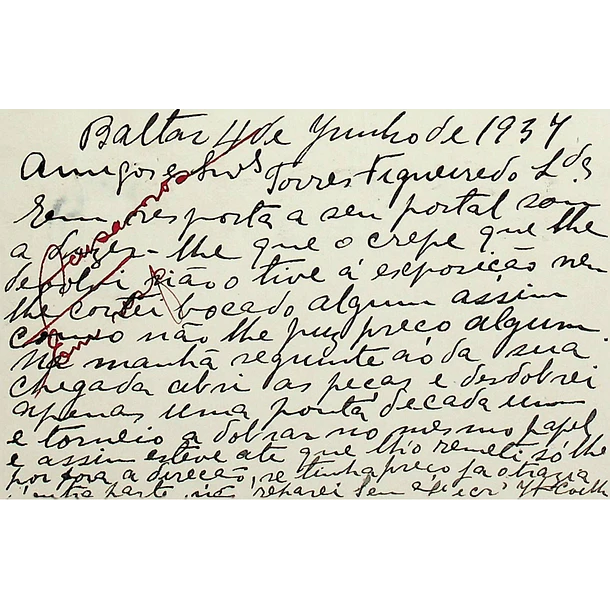 Baltar 4 de Junho de 1937
Amigos e Snrs Torres Figueiredo Ldª
Em resposta a seu portal som
a dizer-lhe que o crepe que lhe
devolvi não o tive á exposição nem
lhe cortei bocado algum assim
como não lhe puz preco algum.
Na manhã seguinte ao da sua
chegada abri as peças e desdobrei
apenas uma ponta de cada uma
e torneio a dobrar no mesmo papel
e assim estêve até que lho remeti só lhe
por fora a direcão, se tinha preço ja o trazia
outra parte não reparei Sem Coelh